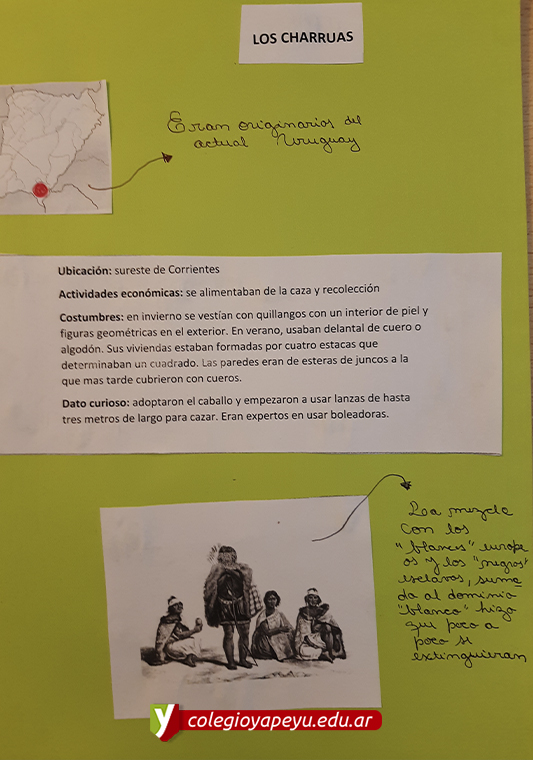 LOS CHARRUAS
Eran originarios del
actual Uruguay
Ubicación: sureste de Corrientes
Actividades económicas: se alimentaban de la caza y recolección
Costumbres: en invierno se vestían con quillangos con un interior de piel y
figuras geométricas en el exterior. En verano, usaban delantal de cuero o
algodón. Sus viviendas estaban formadas por cuatro estacas que
determinaban un cuadrado. Las paredes eran de esteras de juncos a la
que mas tarde cubrieron con cueros.
Dato curioso: adoptaron el caballo y empezaron a usar lanzas de hasta
tres metros de largo para cazar. Eran expertos en usar boleadoras.
La mezcla
con los
"blancos" europe
os y los "negros"
esclavos, suma
da al dominio
"blanco" hizo
que poco a
poco se
extinguieran
y colegioyapeyu.edu.ar